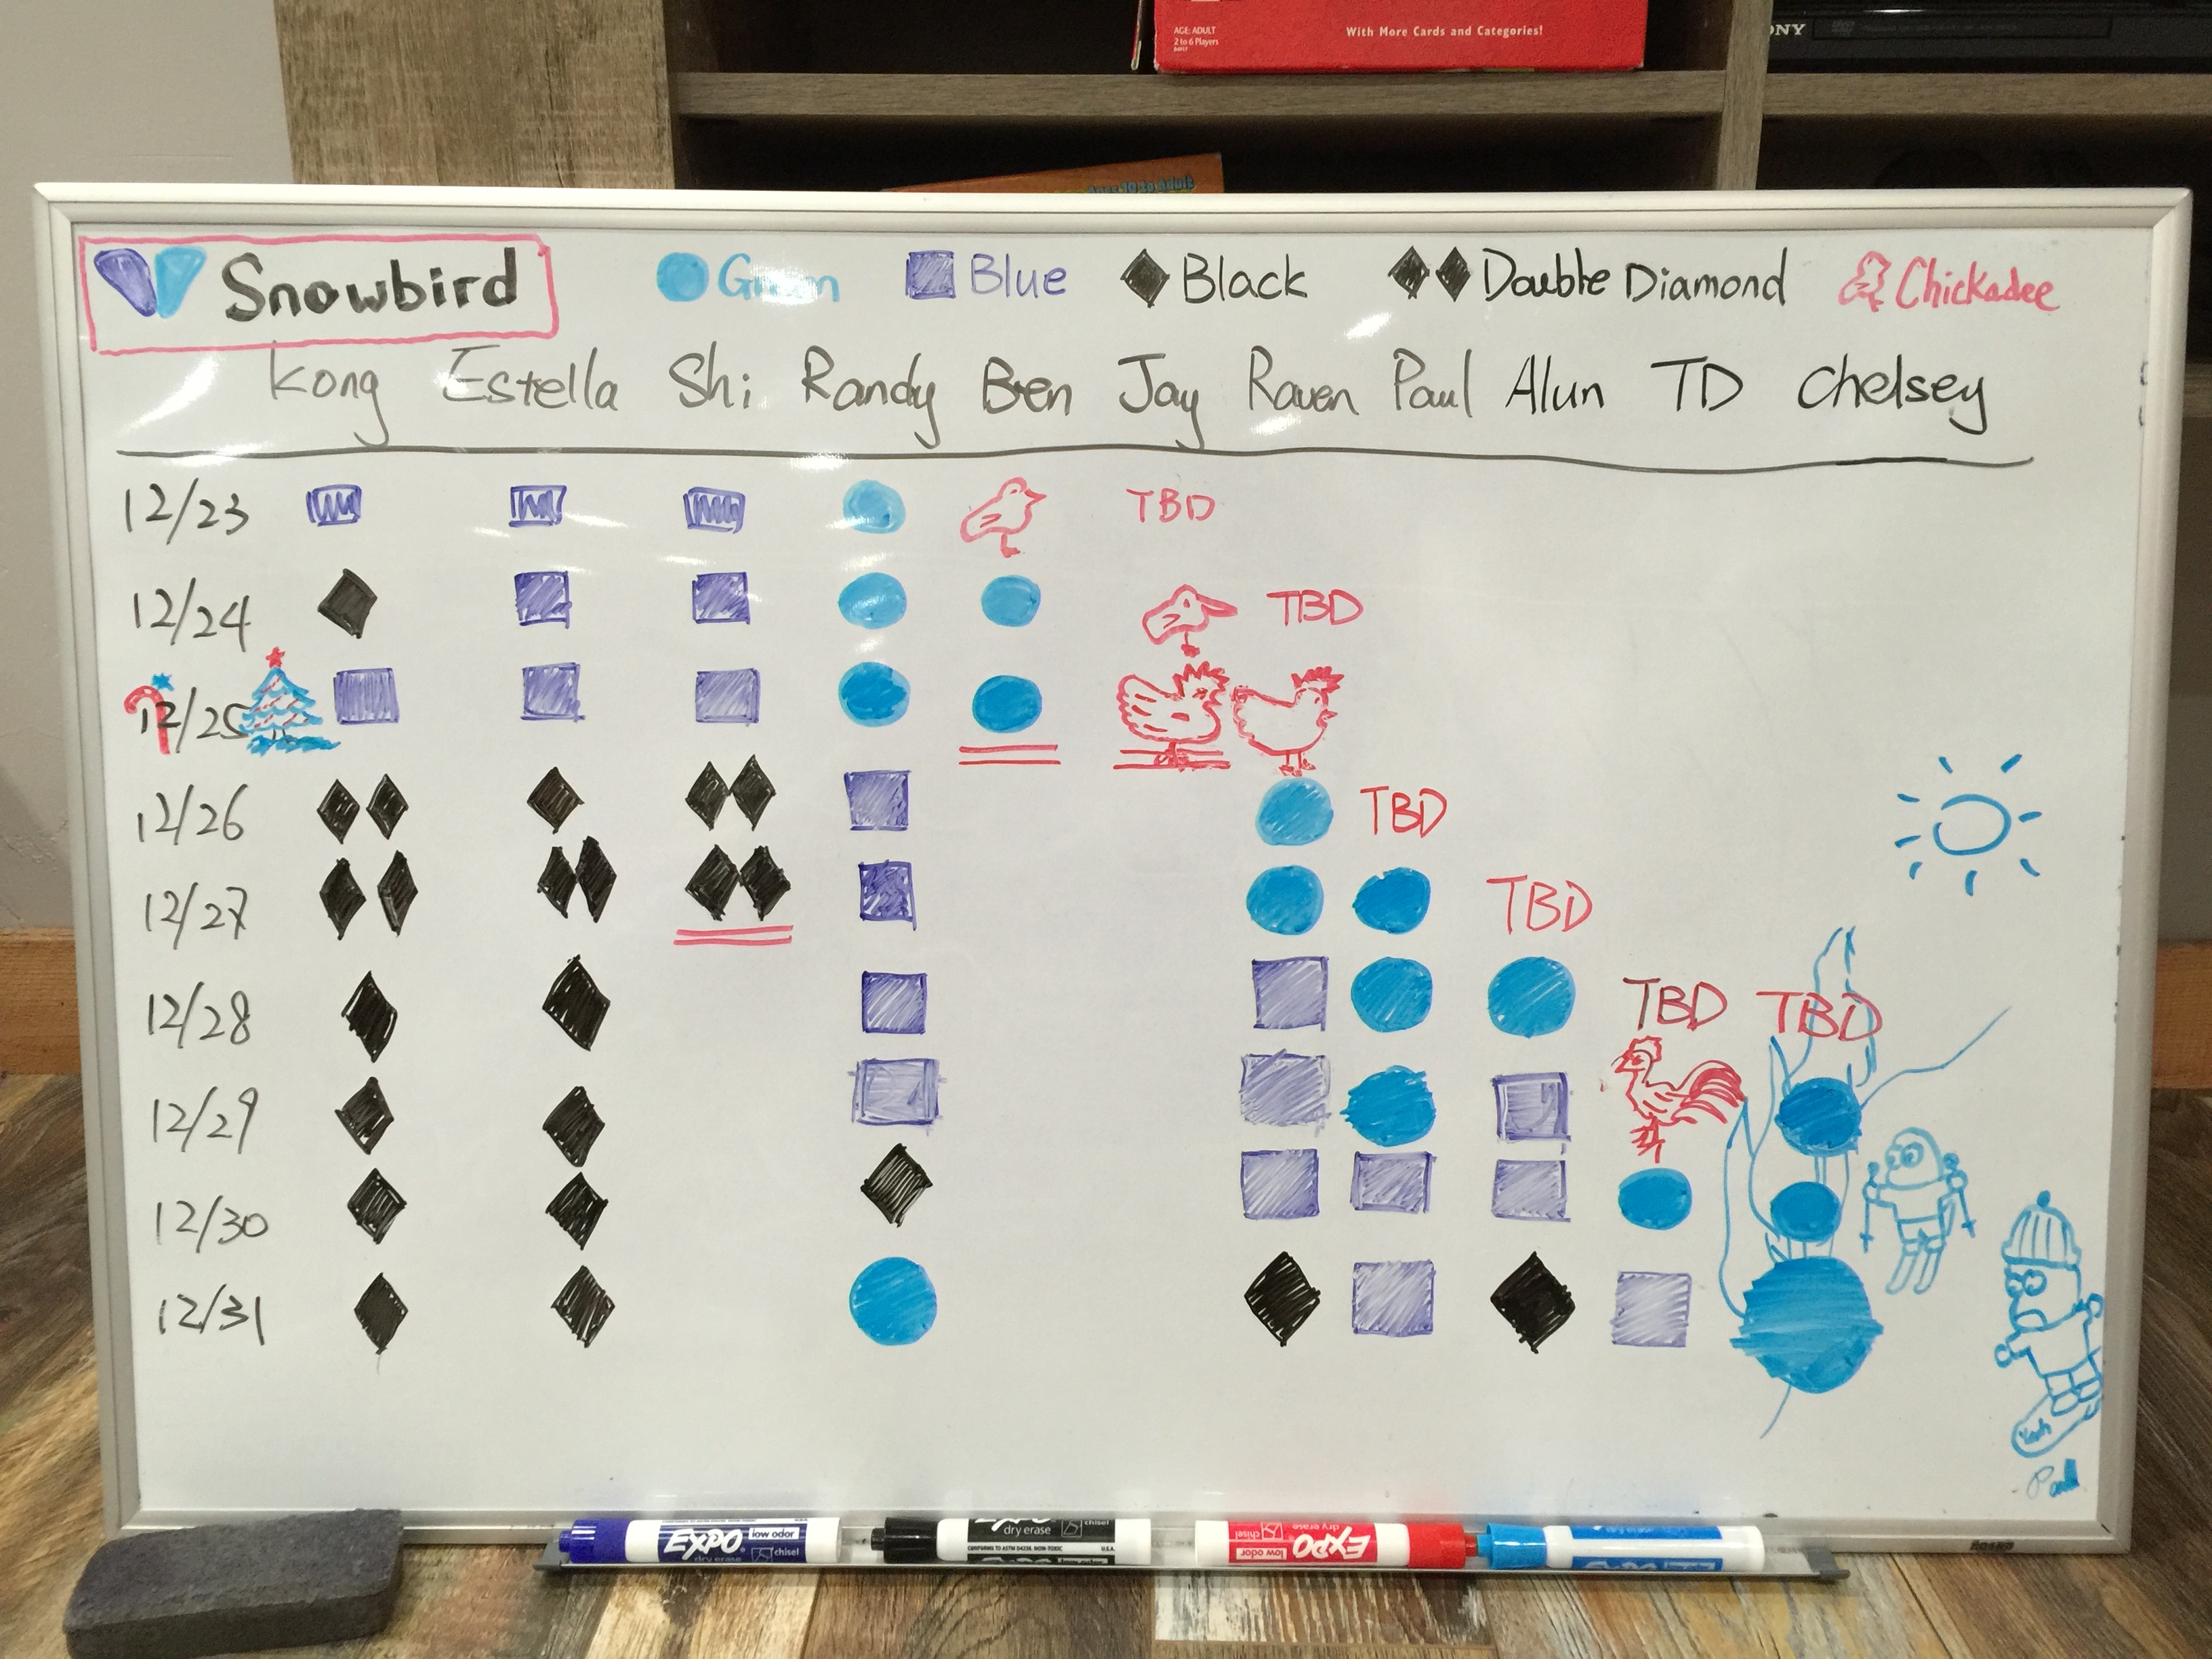 AGE: ADULT
2 to 6 Players
With More Cards and Categories!
Snowbird Green Blue Black Double Diamond Chickadee
Kong Estella Shi Randy Ben Jay Raven Paul Alun TD Chelsey
12/23 TBD
12/24 TBD
12/25
12/26 TBD
12/27 TBD
12/28 TBD TBD
12/29
12/30
12/31
Paul
EXPO low odor
dry erase chisel
dry erase chisel
CONFORMS TO ASTM D4236 NON-TOXIC U.S.A.
EXPO low odor
dry erase chisel